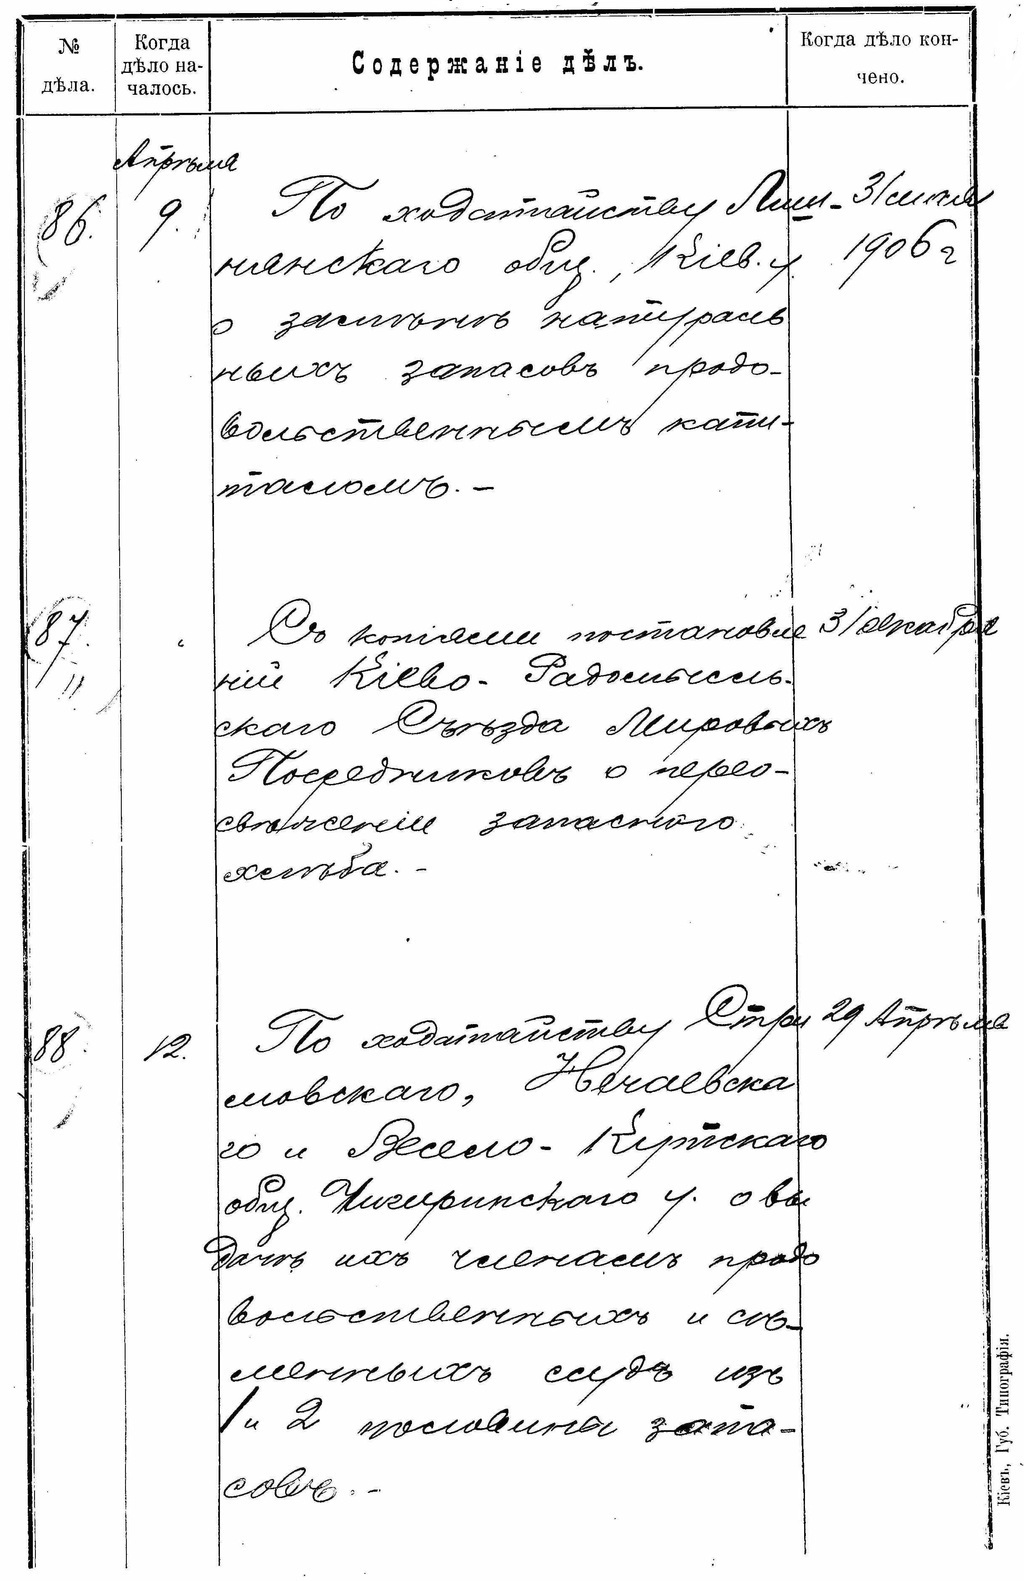 № дѣла.
Когда дѣло на-
чалось.
Содержаніе дѣлъ.
Когда дѣло кон-
чено.
Апрѣля
86. 9. По ходатайству
нянскаго общ., Кіев. у. 1906 г
о замѣнѣ натураль
ныхъ запасовъ продо-
вольственнымъ капи-
таломъ. –
87. " Съ копіями постановле 31 декабря
ній Кіево-Радомысль-
скаго Съѣзда Мировыхъ
Посредниковъ о перео-
свѣженіи запаснаго
хлѣба. –
88. 12. По ходатайству Стри 29 Апрѣля
мовскаго, Нечаевска
го и Весело-Кутскаго
общ. Чигиринскаго у. о вы
дачѣ ихъ членамъ продо
вольственныхъ и сѣ-
менныхъ ссудъ изъ
1 и 2 половины запа-
совъ. –
Кіевъ, Губ. Типографія.